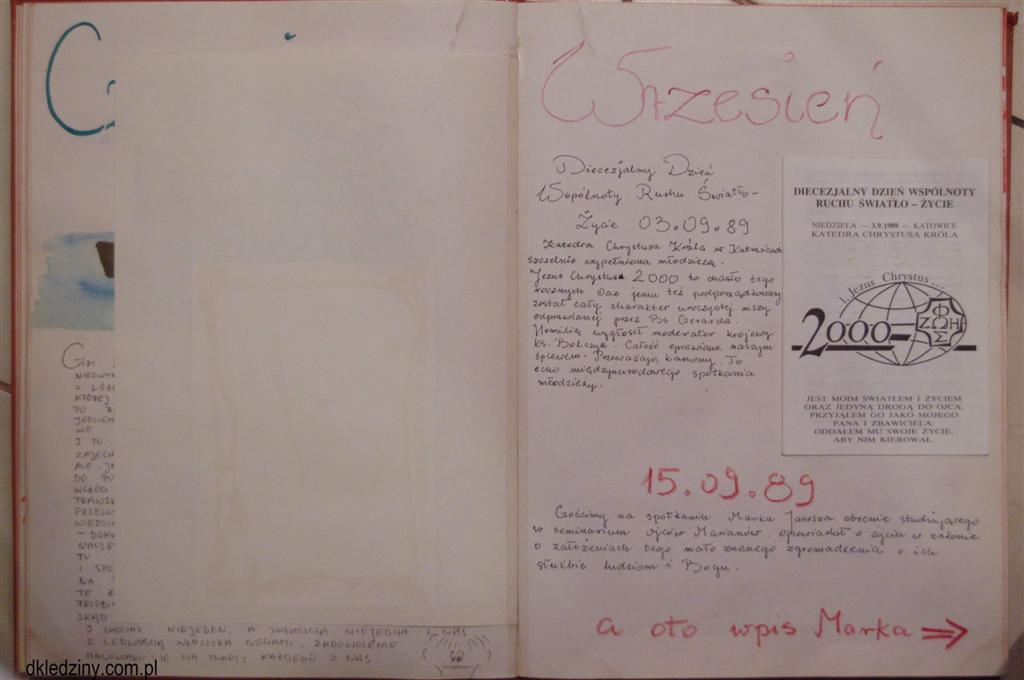 G
GDY
NIEZWY
Z ŁÓŻ
KTÓREJ
TO Z
JEDZIEM
WO
I TU
ZAJECH
ALE J
DO PU
WŚRÓD
TRAWSK
PRZEWO
WIEDZI
- DOKO
NASZE
TU
I SPO
NA
TO K
PRZEBI
SKĄD
I CHOCIAŻ NIEJEDEN, A ZWŁASZCZA NIEJEDNA Z NAS
Z LEDWOŚCIĄ WŁÓCZYŁA NOGAMI, ZADOWOLENIE
MALOWAŁO SIĘ NA TWARZY KAŻDEGO Z NAS.
dkledziny.com.pl
Wrzesień
Diecezjalny Dzień
Wspólnoty Ruchu Światło-
Życie 03.09.89
Katedra Chrystusa Króla w Katowicach
szczelnie wypełniona młodzieżą.
Jezus Chrystus 2000 to hasło tego
rocznych Oaz jemu też podporządkowany
został cały charakter uroczystej mszy
odprawianej przez Bs Gerarda.
Homilię wygłosił moderator krajowy
ks. Bolczyk. Całość oprawiona naszym
śpiewem. Przeważają kanony. To
echo międzynarodowego spotkania
młodzieży.
DIECEZJALNY DZIEŃ WSPÓLNOTY
RUCHU ŚWIATŁO – ŻYCIE
NIEDZIELA — 3.9.1989 — KATOWICE
KATEDRA CHRYSTUSA KRÓLA
1. Jezus Chrystus...
2000
ΦΩΣ
ΖΩΗ
JEST MOIM ŚWIATŁEM I ŻYCIEM
ORAZ JEDYNĄ DROGĄ DO OJCA.
PRZYJĄŁEM GO JAKO MOJEGO
PANA I ZBAWICIELA:
ODDAŁEM MU SWOJE ŻYCIE,
ABY NIM KIEROWAŁ.
15.09.89
Gościmy na spotkaniu Marka Jarosza obecnie studiującego
w seminarium ojców Marianów. Opowiadał o życiu w zakonie
o założeniach tego mało znanego zgromadzenia o ich
służbie ludziom i Bogu.
a oto wpis Marka ⇒